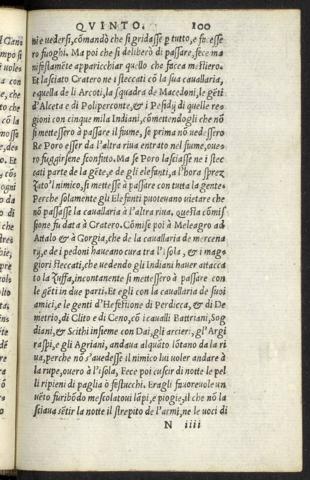 QVINTO. 100
ni e uedersi, cõmandò che si gridasse ꝑ tutto, e facesse
ro fuoghi. Ma poi che si deliberò di passare, fece ma
nifestamẽte apparicchiar quello che facea mestiero.
Et lasciato Cratero ne i steccati cõ la sua cauallaria,
e quella de li Arcoti, la squadra de Macedoni, le gẽti
d'Alceta e di Polipercontе, & i Pesidij di quelle re-
gioni con cinque mila Indiani, cõmettendogli che nõ
si mettessero à passare il fiume, se prima nõ uedessero
Re Poro esser da l'altra riua entrato nel fiume, oue-
ro fuggirsene sconfitto. Ma se Poro lasciasse ne i stec
cati parte de la gẽte, e de gli elefanti, a l'hora sprez
zato l'inimico, si mettesse à passare con tutta la gente.
Perche solamente gli Elefanti puoteuano uietare che
nõ passasse la cauallaria à l'altra riua, questa cõmis-
sione fu data à Cratero. Cõmise poi à Meleagro ad
Attalo & à Gorgia, che de la cauallaria de mercena
rij, e de i pedoni haueano cura tra l'isola, & i mag-
giori steccati, che uedendo gli Indiani hauer attacca
to la zuffa, incontanente si mettessero à passare con
le gẽti in due parti. Et egli con la cauallaria de suoi
amici, e le genti d'Hefestione di Perdicca, & di De
metrio, di Clito e di Ceno, cõ i caualli Battriani, Sog
diani, & Scithi insieme con Dai, gli arcieri, gl'Argi
raspi, e gli Agriani, andaua alquãto lõtano da la ri
ua, perche nõ s'auedesse il nimico lui uoler andare à
la rupe, ouero à l'isola, Fece poi cuscir di notte le pel
li ripieni di paglia ò festucchi. Eragli fauoreuole un
uẽto furibõdo mescolato ui lãpi, e piogie; il che nõ la
sciaua sẽtir la notte il strepito de l'armi, ne le uoci di
N iiii